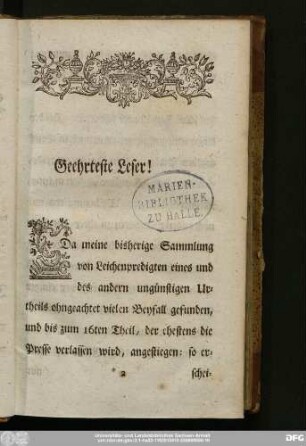 Geehrteste Leser!
MARIEN-
BIBLIOTHEK
ZU HALLE.
Da meine bisherige Sammlung
von Leichenpredigten eines und
des andern ungünstigen Ur-
theils ohngeachtet vielen Beyfall gefunden,
und bis zum 16ten Theil, der ehestens die
Presse verlassen wird, angestiegen: so er-
a
schei-
DFG